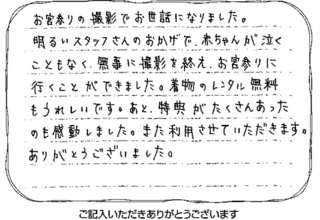 お宮参りの撮影でお世話になりました。
明るいスタッフさんのおかげで、赤ちゃんが泣く
こともなく、無事に撮影を終え、お宮参りに
行くことができました。着物のレンタル無料
もうれしいです。あと、特典がたくさんあった
のも感動しました。また利用させていただきます。
ありがとうございました。
ご記入いただきありがとうございます